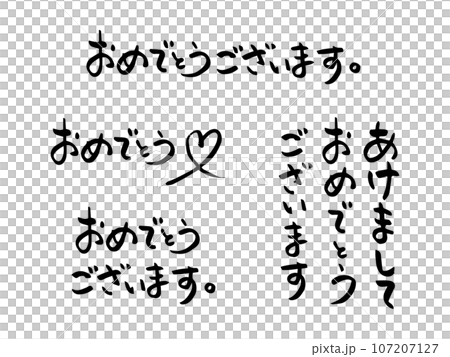 おめでとうございます。
おめでとう
おめでとう
ございます。
あけまして
おめでとう
ございます
PIXTA
107207127